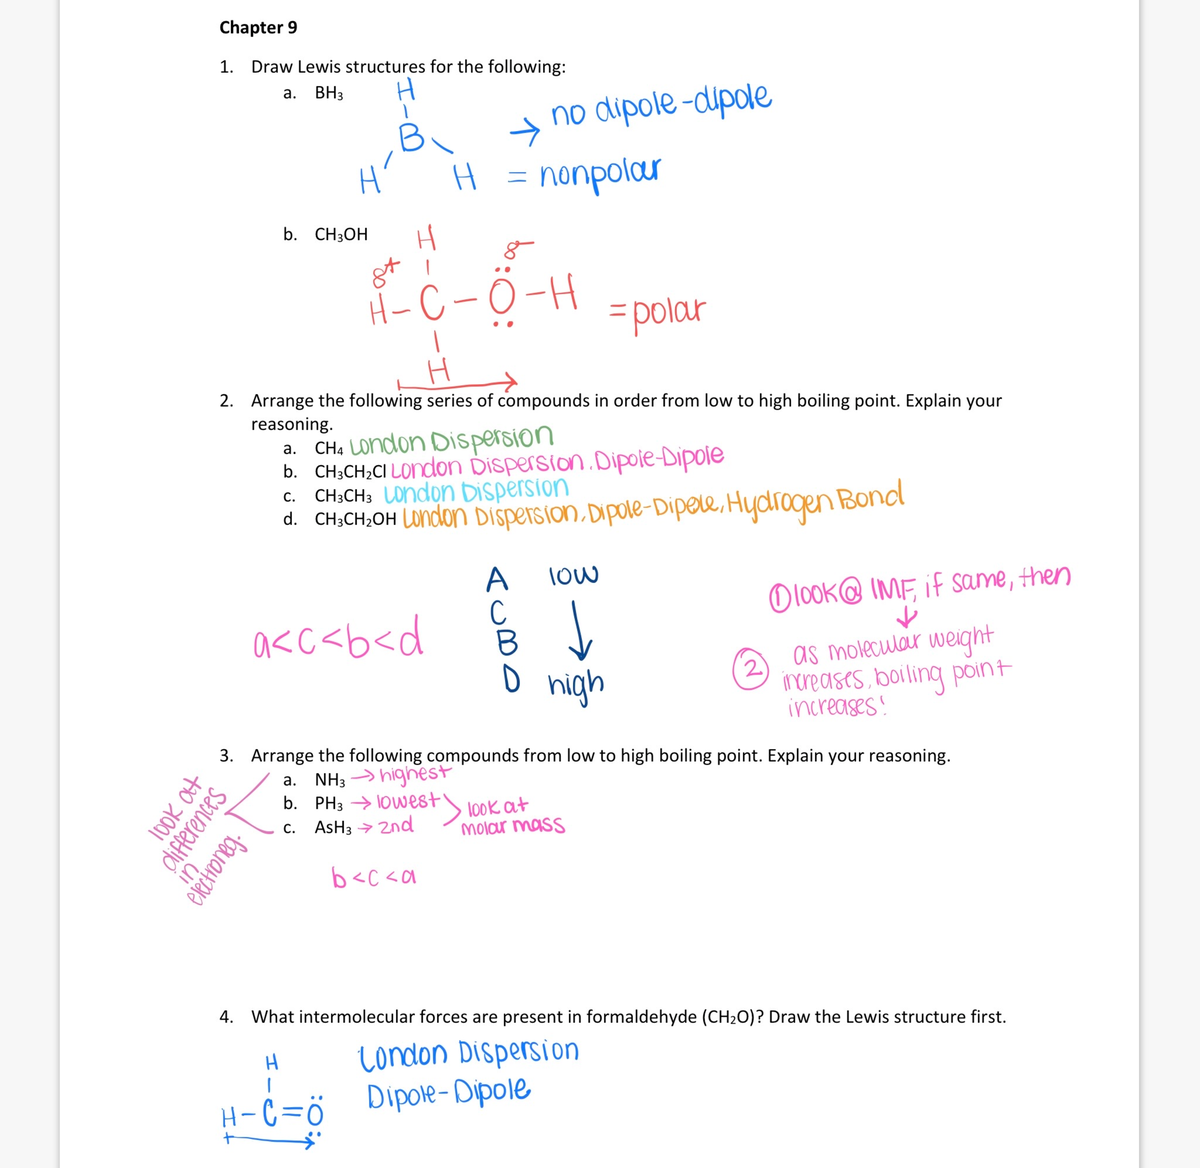 Chapter 9
1. Draw Lewis structures for the following:
a. BH₃
H
B
H H
→ no dipole-dipole
= nonpolar
b. CH₃OH
H
δ+ δ-
H-C-Ö-H
H
=polar
2. Arrange the following series of compounds in order from low to high boiling point. Explain your
reasoning.
a. CH₄ London Dispersion
b. CH₃CH₂Cl London Dispersion, Dipole-Dipole
c. CH₃CH₃ London Dispersion
d. CH₃CH₂OH London Dispersion, Dipole-Dipole, Hydrogen Bond
a<c<b<d
A low
C
B ↓
D high
① look@ IMF, if same, then
↓
② as molecular weight
increases, boiling point
increases!
3. Arrange the following compounds from low to high boiling point. Explain your reasoning.
a. NH₃ → highest
b. PH₃ → lowest
c. AsH₃ → 2nd
look at
molar mass
look at
differences
in
electroneg.
b<c<a
4. What intermolecular forces are present in formaldehyde (CH₂O)? Draw the Lewis structure first.
H
H-C=Ö
London Dispersion
Dipole-Dipole